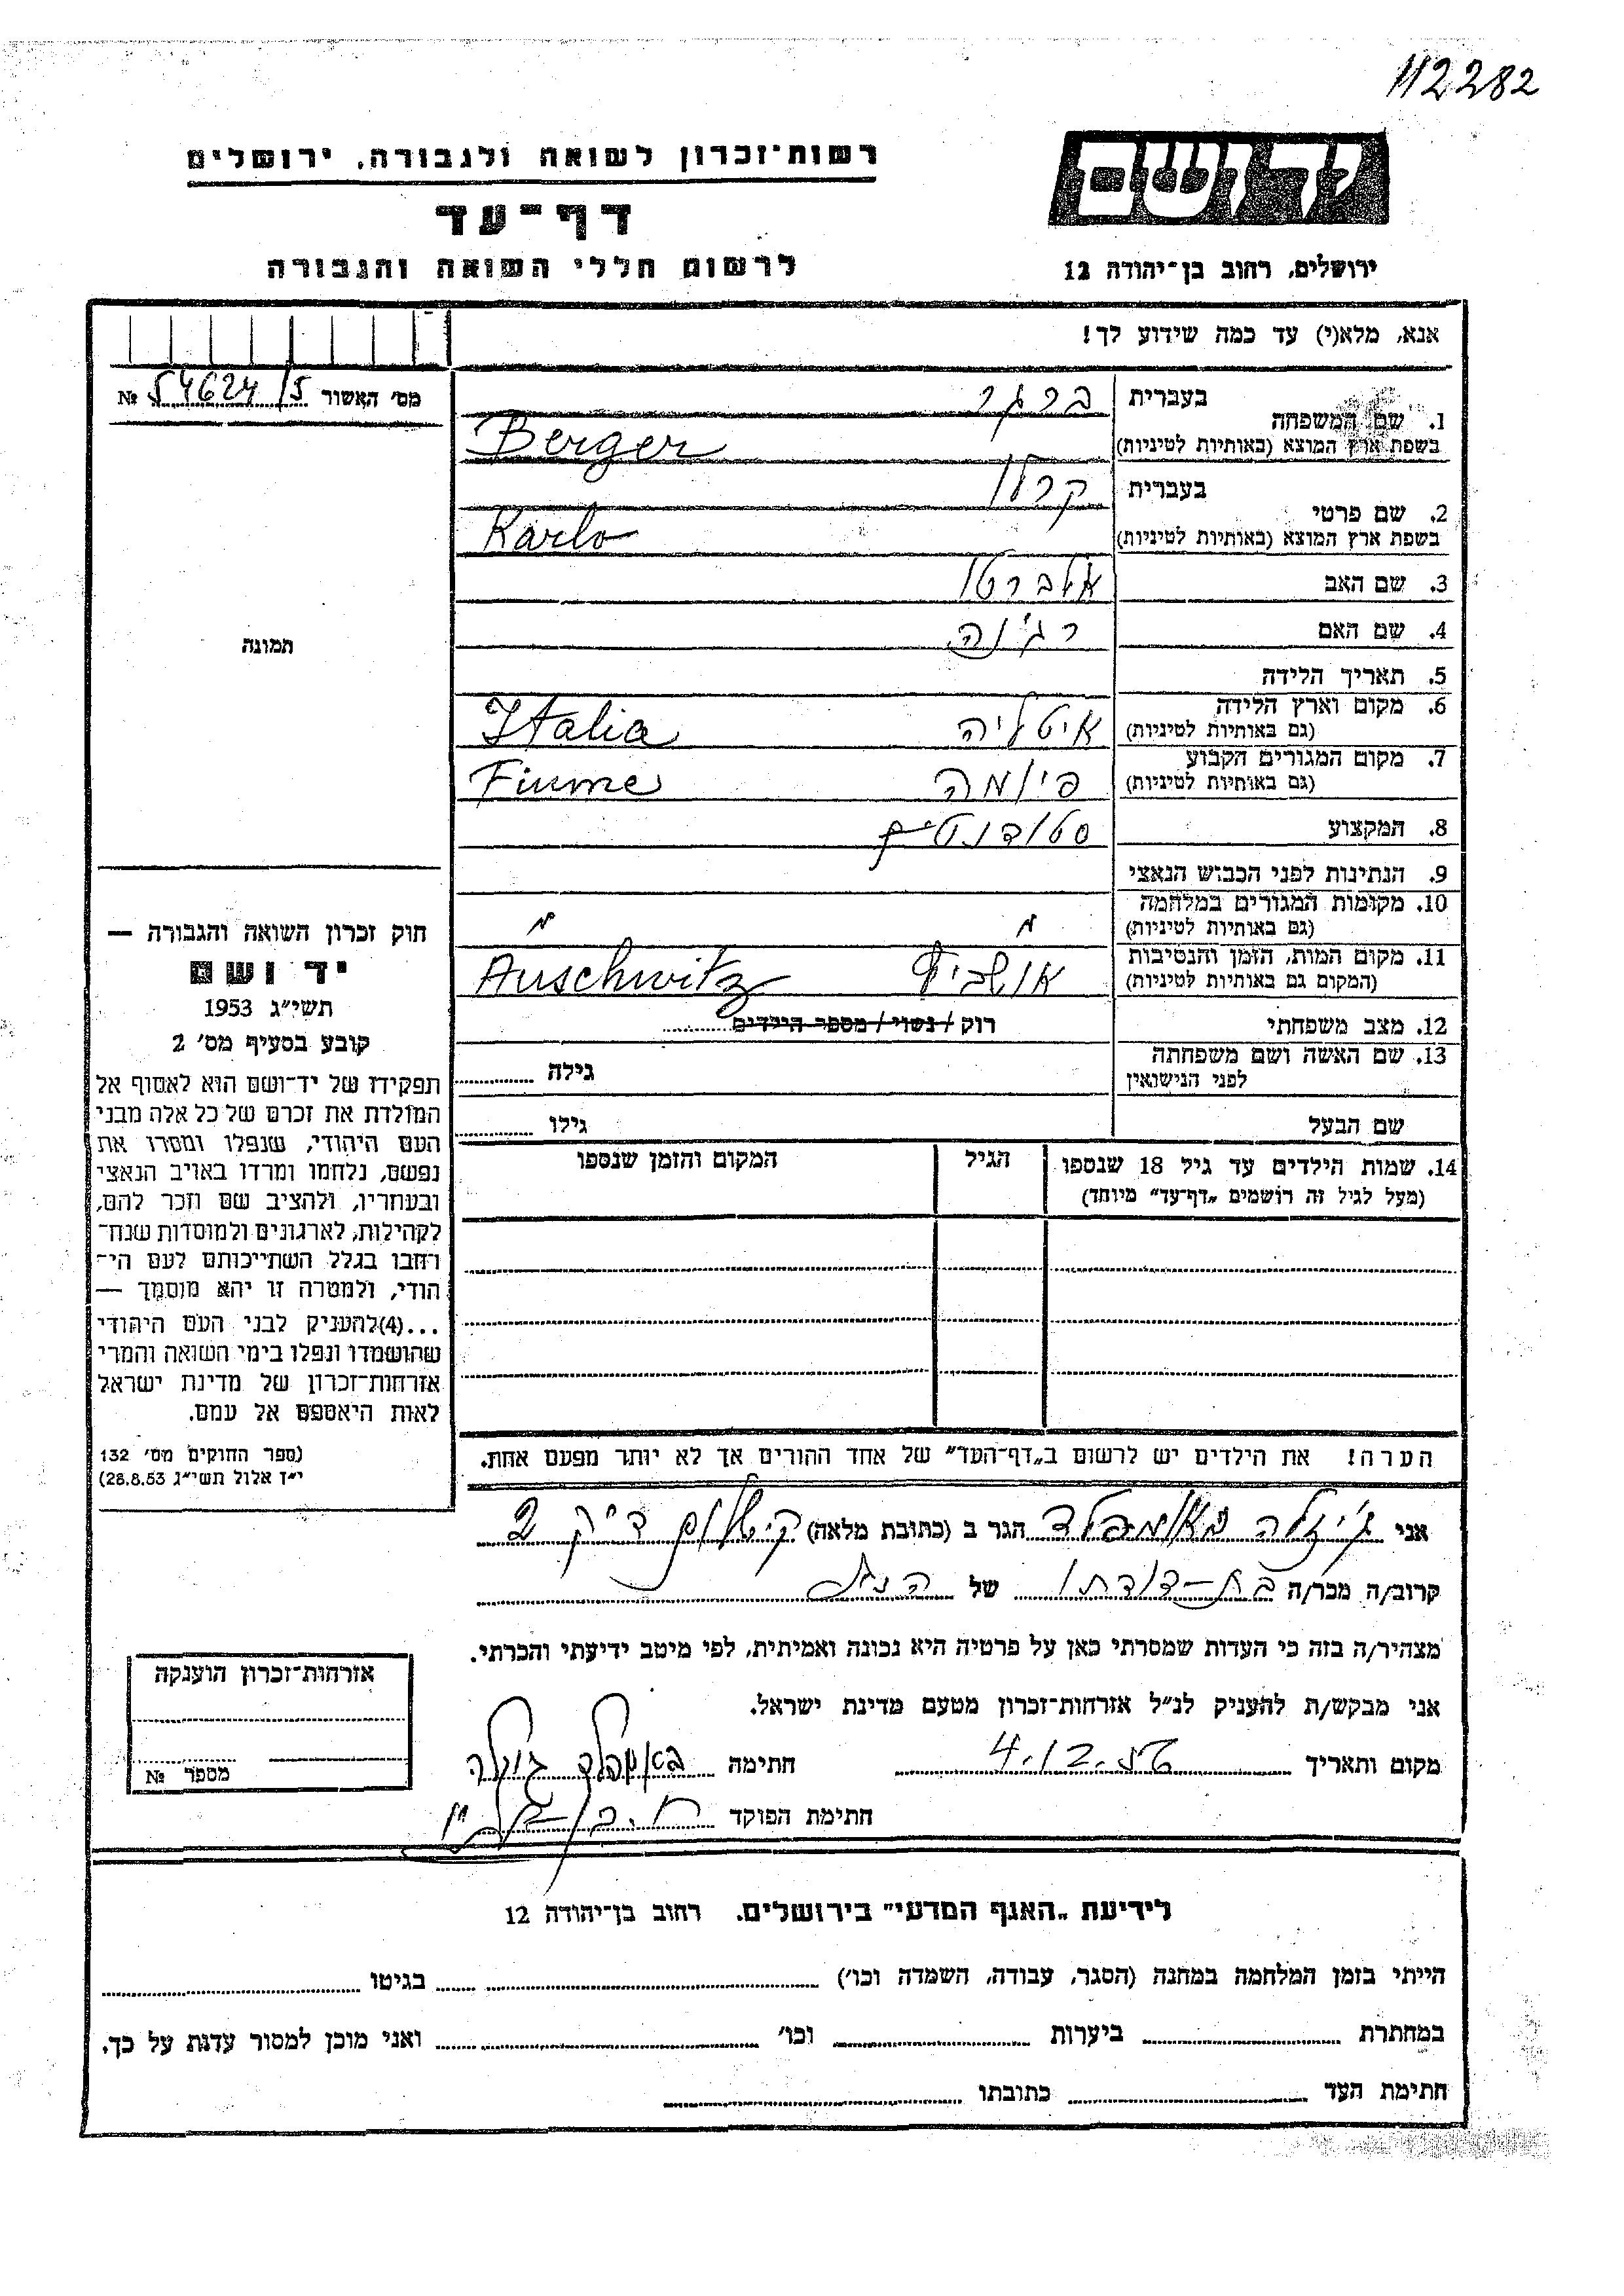 112282
ידושם
רשות־זכרון לשואה ולגבורה, ירושלים
דף־עד
לרשום חללי השואה והגבורה
ירושלים, רחוב בן־יהודה 12
אנא, מלא(י) עד כמה שידוע לך!
מס׳ האשור № 54624/5
תמונה
1. שם המשפחה
בעברית ברגר
בשפת ארץ המוצא (באותיות לטיניות) Berger
2. שם פרטי
בעברית קרלו
בשפת ארץ המוצא (באותיות לטיניות) Karlo
3. שם האב אלברטו
4. שם האם רג'נה
5. תאריך הלידה
6. מקום וארץ הלידה
(גם באותיות לטיניות) איטליה Italia
7. מקום המגורים הקבוע
(גם באותיות לטיניות) פיומה Fiume
8. המקצוע
9. הנתינות לפני הכבוש הנאצי
10. מקומות המגורים במלחמה
(גם באותיות לטיניות) " "
11. מקום המות, הזמן והנסיבות
(המקום גם באותיות לטיניות) אושביץ Auschwitz
12. מצב משפחתי רוק / נשוי / מספר הילדים
13. שם האשה ושם משפחתה
לפני הנישואין גילה
שם הבעל גילו
14. שמות הילדים עד גיל 18 שנספו הגיל המקום והזמן שנספו
(מעל לגיל זה רושמים „דף־עד” מיוחד)
חוק זכרון השואה והגבורה —
יד ושם
תשי״ג 1953
קובע בסעיף מס׳ 2
תפקידו של יד־ושם הוא לאסוף אל
המולדת את זכרם של כל אלה מבני
העם היהודי, שנפלו ומסרו את
נפשם, נלחמו ומרדו באויב הנאצי
ובעוזריו, ולהציב שם וזכר להם,
לקהילות, לארגונים ולמוסדות שנח־
רחבו בגלל השתייכותם לעם הי־
הודי, ולמטרה זו יהא מוסמך —
...(4)להעניק לבני העם היהודי
שהושמדו ונפלו בימי השואה והמרי
אזרחות־זכרון של מדינת ישראל
לאות היאספם אל עמם.
(ספר החוקים מס׳ 132
י״ז אלול תשי״ג 28.8.53)
הערה! את הילדים יש לרשום ב„דף־העד” של אחד ההורים אך לא יותר מפעם אחת.
אני ג'יזלה באומפלד הגר ב (כתובת מלאה) 2
קרוב/ה מכר/ה בת-דודתו של הנ"ל
מצהיר/ה בזה כי העדות שמסרתי כאן על פרטיה היא נכונה ואמיתית, לפי מיטב ידיעתי והכרתי.
אני מבקש/ת להעניק לנ״ל אזרחות־זכרון מטעם מדינת ישראל.
מקום ותאריך 4.12.56 חתימה
חתימת הפוקד
אזרחות־זכרון הוענקה
מספר №
לידיעת „האגף המדעי” בירושלים, רחוב בן־יהודה 12
הייתי בזמן המלחמה במחנה (הסגר, עבודה, השמדה וכו׳) בגיטו
במחתרת ביערות וכו׳ ואני מוכן למסור עדות על כך.
חתימת העד כתובתו